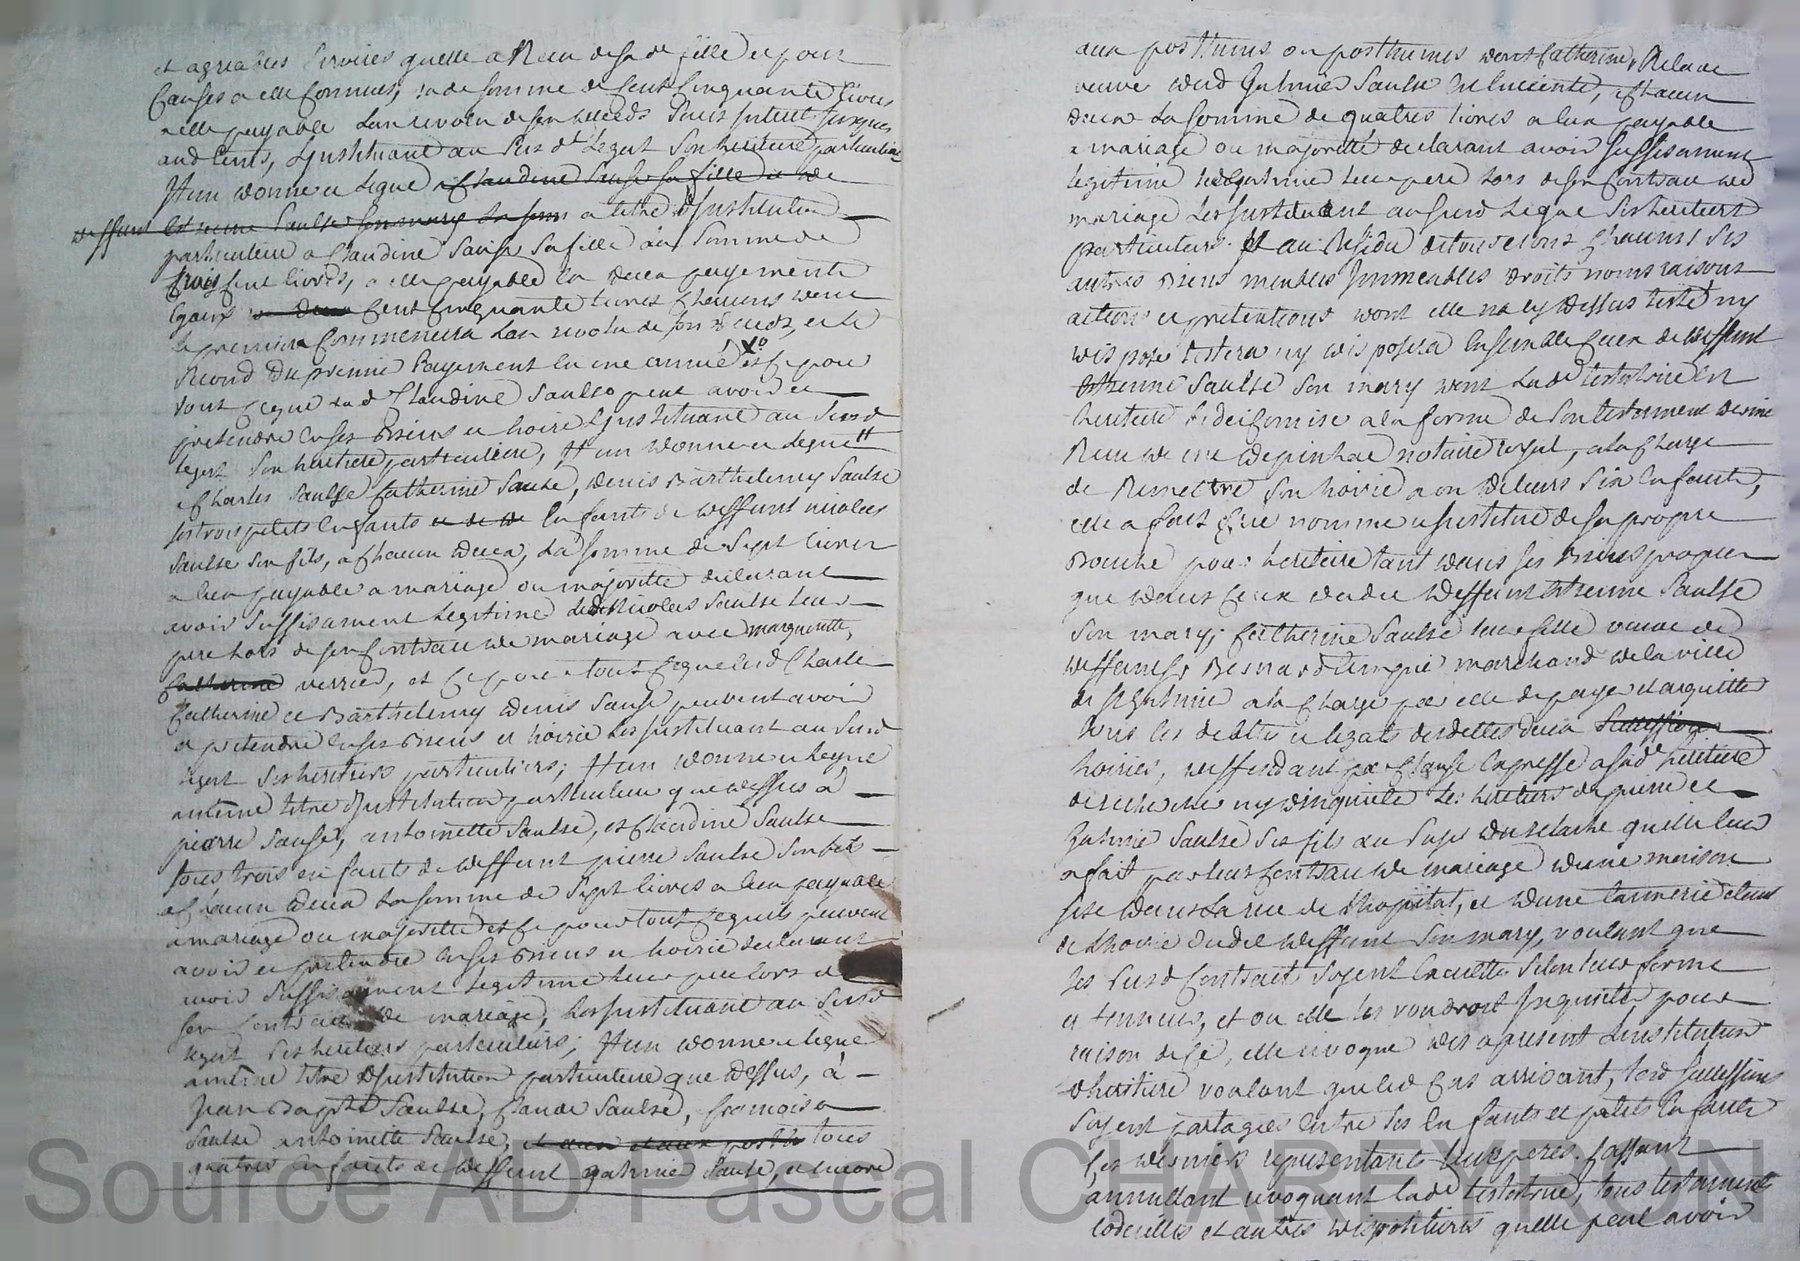 et agreables services quelle a Recu de sad<sup>e</sup> fille et pour
causes a elle connues, sade somme de cent cinquante livres
a elle payable Lan revolu de son deceds sans interets jusques
aud tems, Linstituant au sus d<sup>t</sup> Legat son heritiere particuliere
Item donne et legue a Claudine Sause sa fille et de
deffunt Estienne Saulse son mary la somme a titre dinstitution
particuliere a Claudine Sause sa fille la somme de
trois cent livres, a elle payable en deux payements
egaux de deux cent cinquante livres chacuns dont
le premier commencera Lan revolu de son deceds, et le
second du premier Payement en une année et ce pour
tout ce que lad Claudine Saulse peut avoir et
pretendre en ses Biens et hoirie Linstituant au susd
legat son heritiere particuliere, Item donne et legue
a Charles Saulse Catherine Sause, denis Barthelemy Saulse
ses trois petits enfants enfants de deffunt nicolas
Saulse son fils, a chacun deux, La somme de sept livres
a eux payable a mariage ou majoritte declarant
avoir suffisament Legitime led Nicolas Saulse leur
pere lors de son contract de mariage avec marguerite
Catherine verrier, et ce pour tout ce que lesd Charle
Catherine et Barthelemy denis Sause peuvent avoir
et pretendre en ses Biens et hoirie Les instituant au susd
legat ses heritiers particuliers; Item donne et legue
a meme titre dinstitution particuliere que dessus a
pierre Sause, antoinette Saulse, et Claudine Saulse
tous trois enfants de deffunt pierre Saulse son fils
a chacun deux La somme de sept livres a eux payable
a mariage ou majoritte et ce pour tout ce quils peuvent
avoir et pretendre en ses Biens et hoirie declarant
avoir suffisament legitime leur pere lors de
son contract de mariage, Les instituant au susd
legat ses heritiers particuliers; Item donne et legue
a meme titre dinstitution particuliere que dessus, à
Jean Bapt<sup>e</sup> Saulse, Claude Saulse, francoise
Saulse antoinette Saulse, tous
quatres enfants de deffunt galmier Sause, et encore
aux posthumes ou posthumes dont Catherine
veuve dud Galmier Saulse est enceinte, a chacun
deux La somme de quatres livres a eux payable
a mariage ou majoritte declarant avoir suffisament
legitime led Galmier leur pere lors de son contract de
mariage Les instituant au susd Legat ses heritiers
particuliers. Et au Residu de tous et uns chacuns ses
autres Biens meubles immeubles droits noms raisons
actions et pretentions dont elle na cy dessus testé ny
disposé testera ny disposera ensemble ceux de deffunt
Estienne Saulse son mary dont lad<sup>e</sup> testatrice est
heritiere fideicomise a la forme de son testament dernier
Recu de me depinhac notaire royal, a la charge
de Remettre son hoirie a un de leurs six enfants,
elle a fait cree nomme et institué de sa propre
Bouche pour heritiere tant dans ses Biens propres
que dans ceux dudit deffunt Estienne Saulse
son mary; Catherine Saulse leur fille veuve de
deffunt s<sup>r</sup> Besnard marchand de la ville
de s<sup>t</sup> Galmier a la charge par elle de payer et acquitter
tous les debtes et legats desdittes deux successions
hoiries, deffendant par clause Expresse a sad<sup>e</sup> heritiere
de rechercher ny dinquieter Les heritiers de pierre et
Galmier Saulse ses fils au sujet du relache quelle leur
a fait par leur contract de mariage dune maison
size dans La rue de Lhopital, et dune tannerie etant
de Lhoirie dudit deffunt son mary, voulant que
les susd contracts soyent Executtes selon leur forme
et teneurs, et ou elle les voudroit Inquieter pour
raison de ce, elle revoque des apresent Linstitution
dheritiere voulant que led cas arrivant, lesd successions
soyent partagées entre ses enfants et petits enfants
ces derniers representants leurs peres, cassant
annullant revoquant lad<sup>e</sup> testatrice, tous testaments
codecilles et autres dispositions quelle peut avoir
Source AD Pascal CHAREYRON